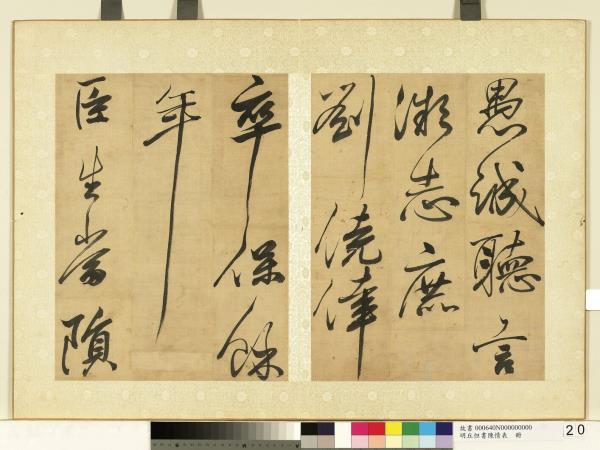 愚誠聽言
微志庶
劉僥倖
卒保餘
年
臣生當隕
故書 000640N000000000
明丘但書陳情表 冊
20